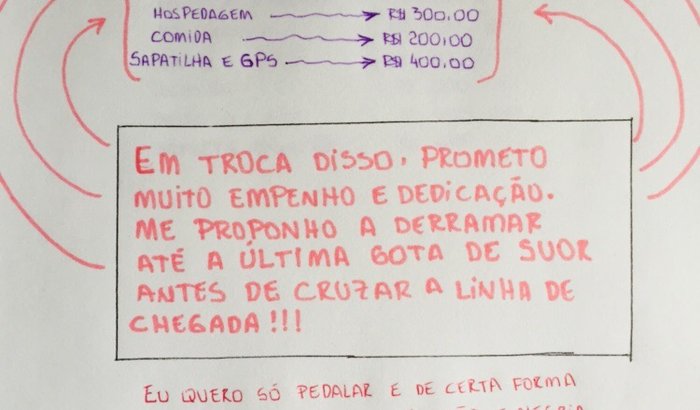 HOSPEDAGEM R$ 300,00
COMIDA R$ 200,00
SAPATILHA E GPS R$ 400,00
EM TROCA DISSO, PROMETO
MUITO EMPENHO E DEDICAÇÃO.
ME PROPONHO A DERRAMAR
ATÉ A ÚLTIMA GOTA DE SUOR
ANTES DE CRUZAR A LINHA DE
CHEGADA!!!
EU QUERO SÓ PEDALAR E DE CERTA FORMA